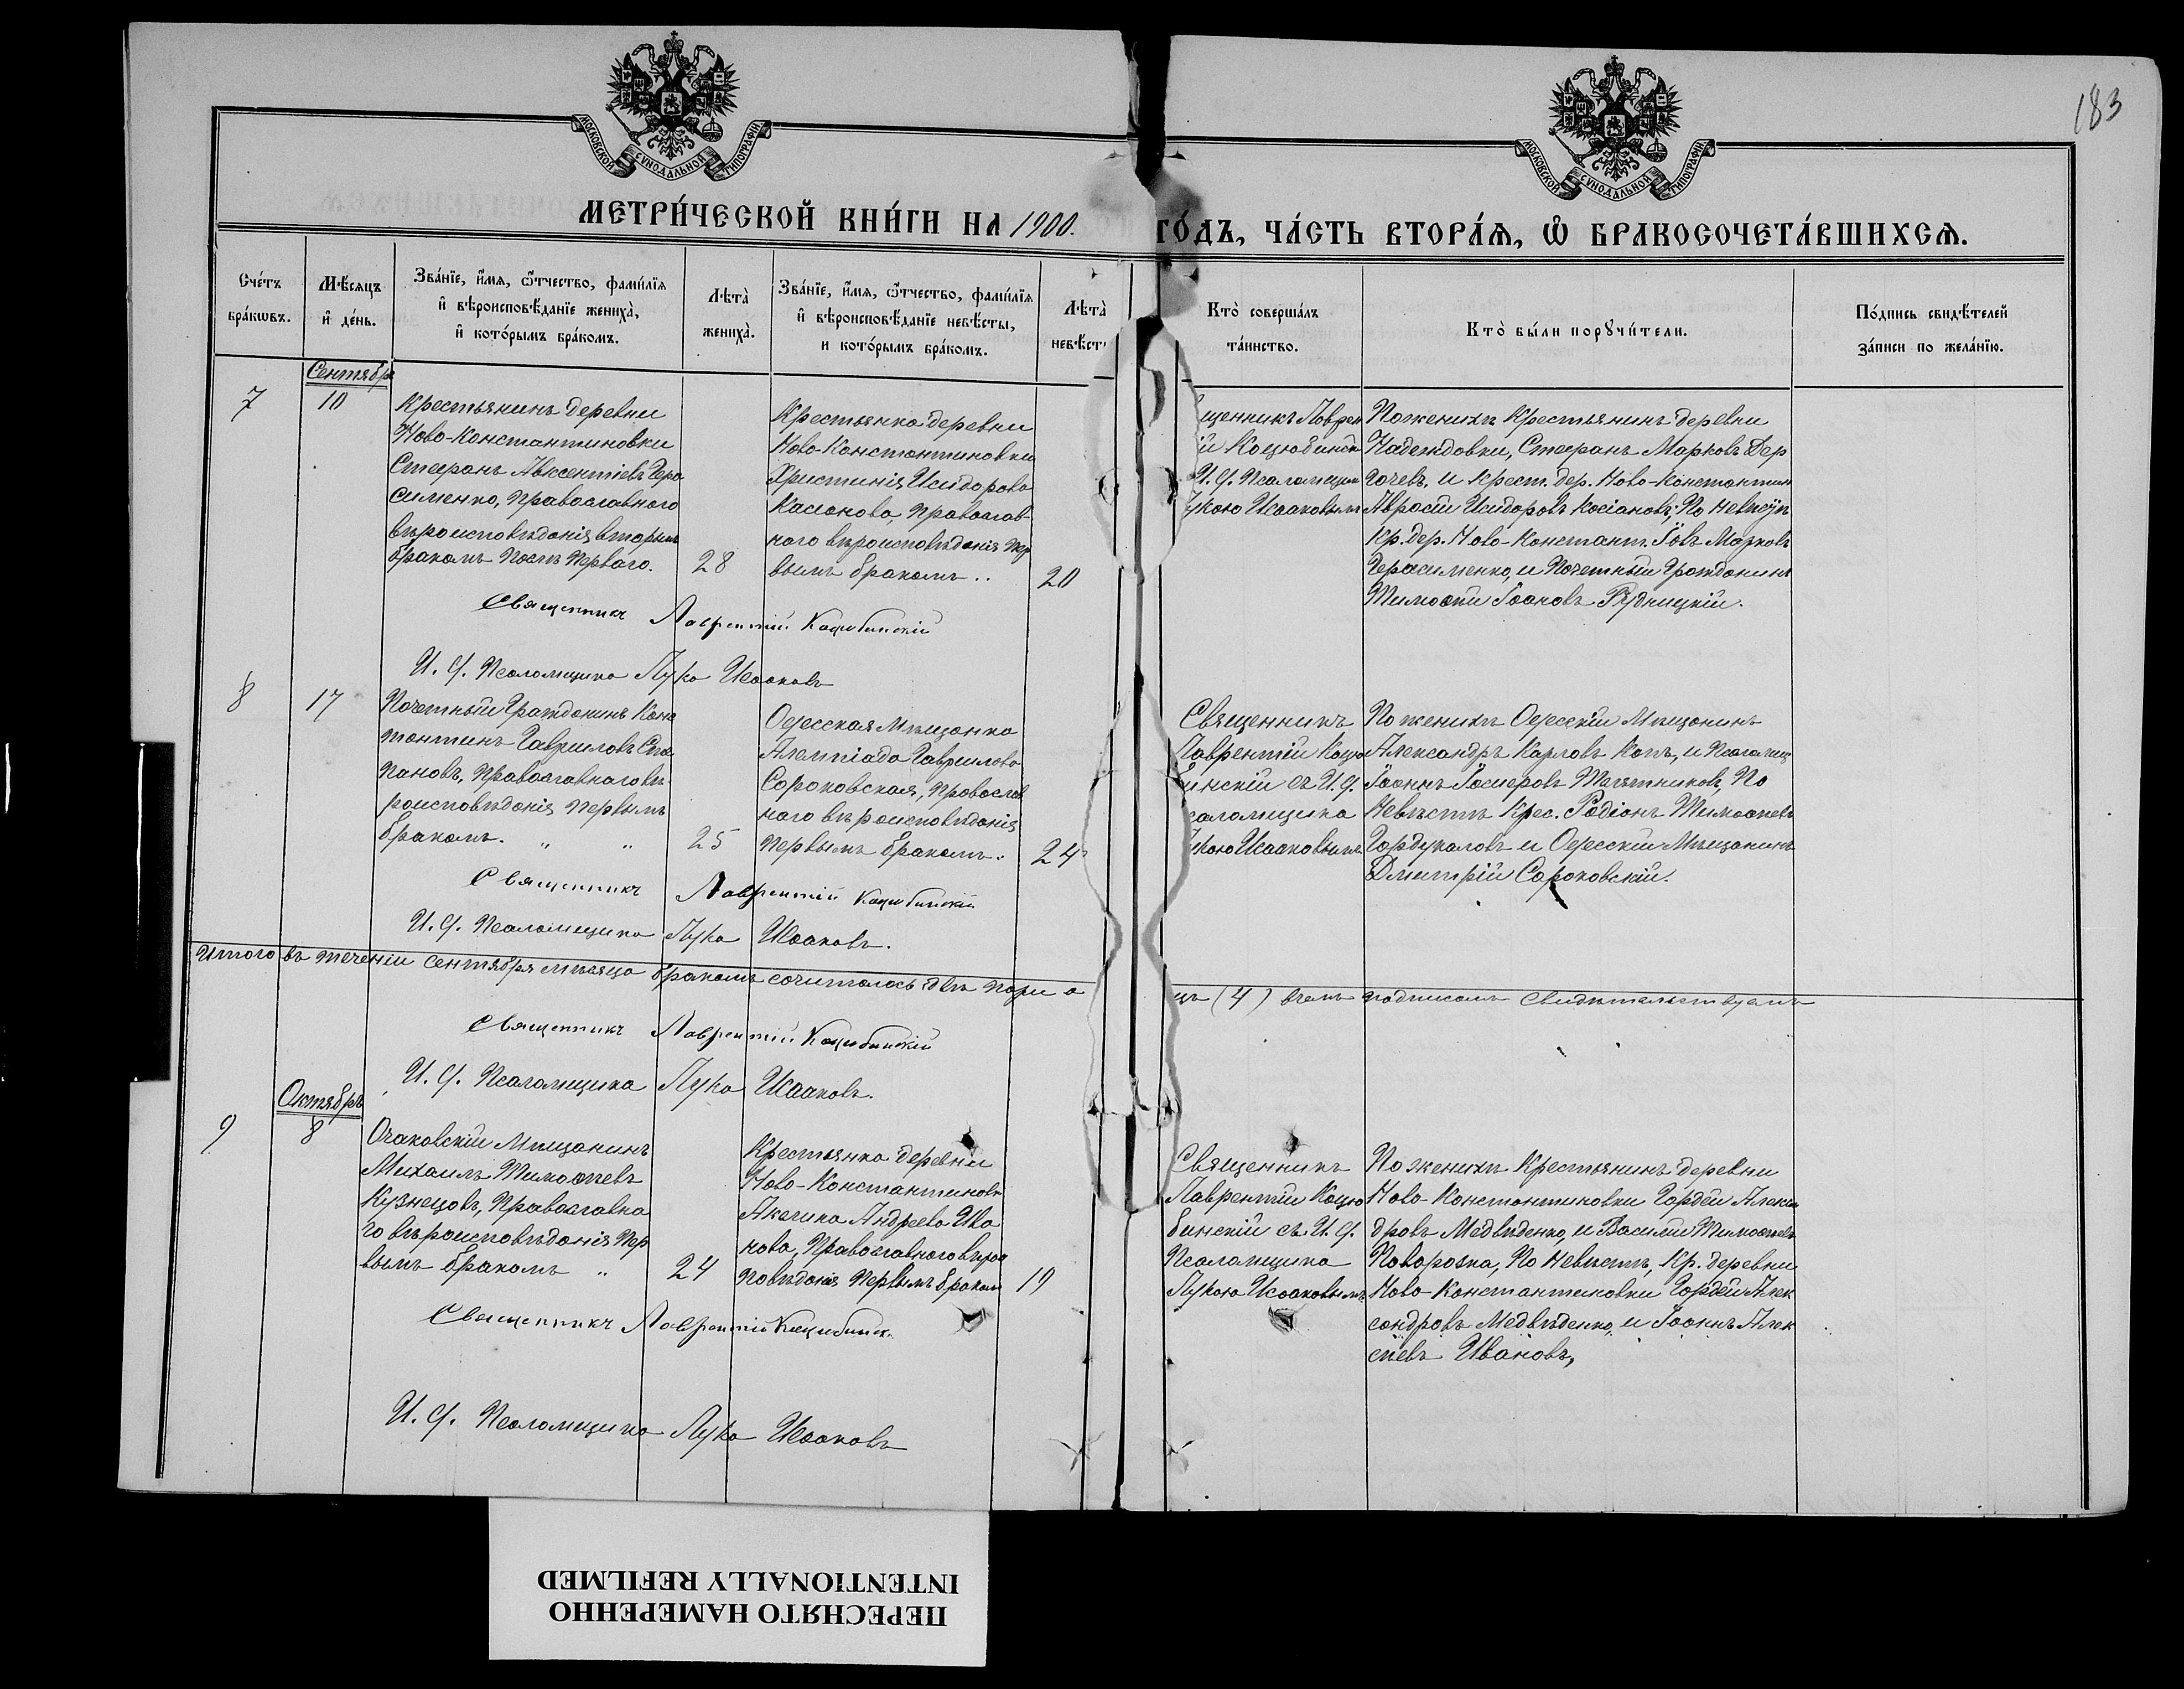 183
МОСКОВСКОЙ СѴНОДАЛЬНОЙ ТИПОГРАФІИ.
МОСКОВСКОЙ СѴНОДАЛЬНОЙ ТИПОГРАФІИ.
МЕТРИ́ЧЕСКОЙ КНИ́ГИ НА 1900.
ГО́ДЪ, ЧА́СТЬ ВТОРА́Я, Ѡ БРАКОСОЧЕТА́ВШИХСЯ.
Сче́тъ
бра́кѡвъ.
Мѣ́сяцъ
и҆ де́нь.
Зва́нїе, и҆́мя, ѻ҆́тчество, фами́лїя
и҆ вѣроисповѣ́данїе жениха̀,
и҆ кото́рымъ бра́комъ.
Лѣта̀
жениха̀.
Зва́нїе, и҆́мя, ѻ҆́тчество, фами́лїя
и҆ вѣроисповѣ́данїе невѣ́сты,
и кото́рымъ бра́комъ.
Лѣта̀
невѣ́ст
Кто̀ соверша́лъ
та́инство.
Кто̀ бы́ли порꙋчи́тели.
По́дпись свидѣ́телей
за́писи по жела́нїю.
Сентябрь
7
10
Крестьянинъ деревни
Ново-Константиновки
Стефанъ Авксентіевъ Гера
сименко, православного
вѣроисповѣданія вторым
бракомъ послѣ перваго.
28
Крестьянка деревни
Ново-Константиновки
Христинія Исидорова
Касіанова, православ-
ного вѣроисповѣданія пер
вымъ бракомъ..
20
щенникъ Лаврен
ій Коцюбинскі
И.д. Псаломщик
укою Исааковымъ
По женихѣ крестьянинъ деревни
Надеждовки, Стефанъ Марковъ Дер
гачевъ, и крест. дер. Ново-Константин
Авросій Исидоровъ Косіановъ; По невѣстѣ
кр. дер. Ново-Констант. Іовъ Марковъ
Герасименко, и почетный гражданинъ
Тимофей Іоановъ Рудницкій.
Священникъ Лаврентій Коцюбинскій
И. д. Псаломщика Лука Исааковъ
8
17
Почетный гражданинъ Конс
тантинъ Гавриловъ Сте
пановъ, православнаго вѣ
роисповѣданія первымъ
бракомъ. „ „
25
Одесская мѣщанка
Алемпіада Гаврилова
Сороковская, православ
наго вѣроисповѣданія
первымъ бракомъ.
24
Священникъ
Лаврентій Коцю
бинскій съ И.д.
саломщика
укою Исааковымъ
По женихѣ Одесскій мѣщанинъ
Александръ Карловъ Копъ, и псаломщ
Іоаннъ Іосифовъ Тягятниковъ, По
невѣстѣ крес. Родіонъ Тимофеевъ
Гордукаловъ и Одесскій мѣщанинъ
Дмитрій Сороковскій.
Священникъ Лаврентій Коцюбинскій
И. д. Псаломщика Лука Исааковъ.
Итого въ теченіи сентября мѣсяца бракомъ сочиталось двѣ пары а
цъ (4) в чемъ подписомъ свидѣтельствуемъ
Священникъ Лаврентій Коцюбинскій
И. д. Псаломщика Лука Исааковъ.
Октябрь
9
8
Очаковскій мѣщанинъ
Михаилъ Тимофеевъ
Кузнецовъ, православна
го вѣроисповѣданія пер
вымъ бракомъ „
24
Крестьянка деревни
Ново-Константиновк
Акелина Андреева Ива
нова, православного вѣрои
повѣданія первымъ браком
19
Священникъ
Лаврентій Коцю
бинскій съ И.д.
Псаломщика
Лукою Исааковымъ
По женихѣ крестьянинъ деревни
Ново-Константиновки Гордей Алексан
дровъ Медвѣденко, и Василій Тимофеевъ
Поворозка, По невѣстѣ, кр. деревни
Ново-Константиновки Гордей Алек
сандровъ Медвѣденко, и Іоаннъ Алек
сѣевъ Ивановъ,
Священникъ Лаврентій Коцюбинск.
И. д. Псаломщика Лука Исааковъ
ПЕРЕСНЯТО НАМЕРЕННО
INTENTIONALLY REFILMED